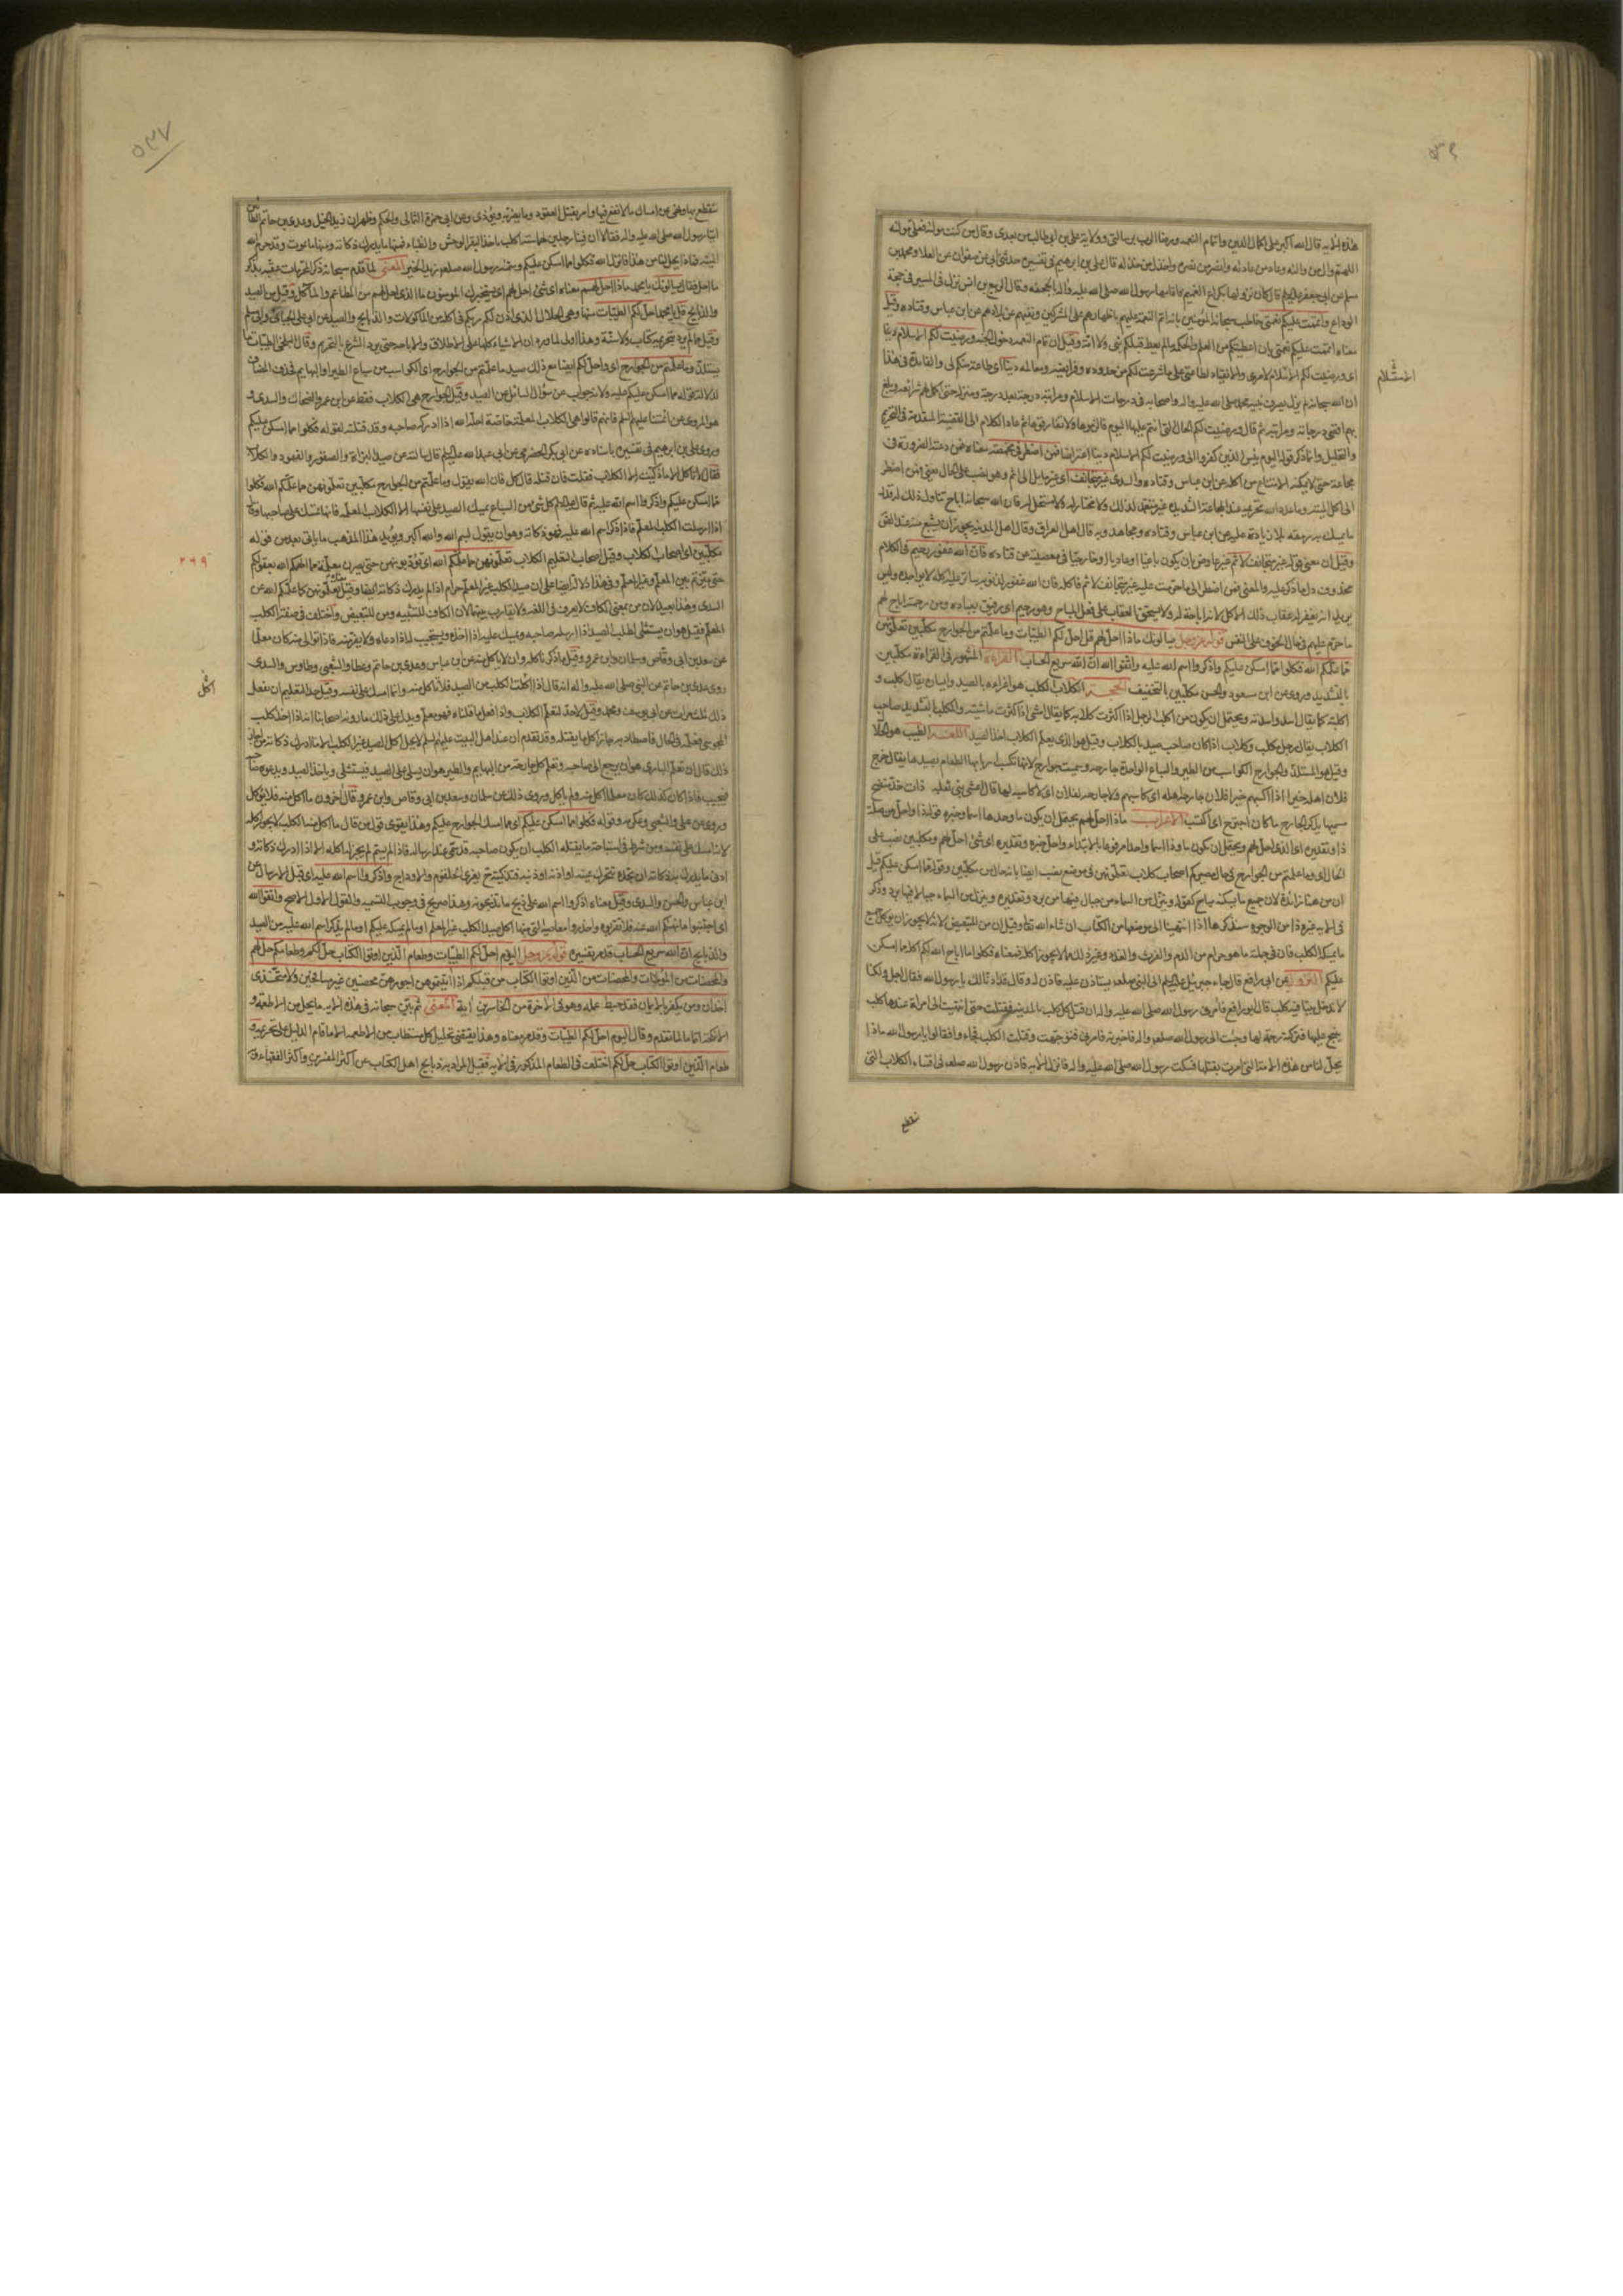 ٥٣٦
هذه الآية قال الله اكبر على اكمال الدين واتمام النعمة ورضا الرب برسالتي وولاية علي بن ابي طالب من بعدي وقال من كنت مولاه فعلي مولاه
اللهم وال من والاه وعاد من عاداه وانصر من نصره واخذل من خذله قال علي بن ابرهيم في تفسيره حدثني ابي عن صفوان عن العلا ومحمد بن
مسلم عن ابي جعفر عليه السلم قال كان نزولها بكراع الغميم فاقامها رسول الله صلى الله عليه واله بالجحفة وقال الربيع بن انس نزل في المسير في حجة
الوداع واتممت عليكم نعمتي خاطب سبحانه المؤمنين بانه اتم النعمة عليهم باظهارهم على المشركين ونفيهم عن بلادهم عن ابن عباس وقتاده وقيل
معناه اتممت عليكم نعمتي بان اعطيتكم من العلم والحكمة ما لم يعط قبلكم نبي ولا امة وقيل ان تمام النعمة دخول الجنة ورضيت لكم الاسلام دينا
اي ورضيت لكم الاستسلام لامري والانقياد لطاعتي على ما شرعت لكم من حدوده وفرايضه ومعالمه دينا اي طاعة منكم لي والفايدة في هذا
ان الله سبحانه لم يزل يصرف نبيه محمد صلى الله عليه واله واصحابه في درجات الاسلام ومراتبه درجة بعد درجة ومنزلة حتى اكمل لهم شرائعه وبلغ
بهم اقصى درجاته ومراتبه ثم قال ورضيت لكم الحال التي انتم عليها اليوم فالزموها ولا تفارقوها ثم عاد الكلام الى القضية المتقدمة في التحريم
والتحليل وانما ذكر قوله اليوم يئس الذين كفروا الى ورضيت لكم الاسلام دينا اعتراضا فمن اضطر في مخمصة معناه فمن دعته الضرورة في
مجاعة حتى لا يمكنه الامتناع من اكله عن ابن عباس وقتاده والسدي غير متجانف اي غير مايل الى اثم وهو نصب على الحال يعني فمن اضطر
الى اكل الميتة وما عدد الله تحريمه عند المجاعة الشديدة غير متعمد لذلك ولا مختار له ولا مستحل له فان الله سبحانه اباح تناول ذلك له قدر
ما يمسك به رمقه بلا زيادة عليه عن ابن عباس وقتاده ومجاهد وبه قال اهل العراق وقال اهل المدينه يجوز ان يشبع منه عند الضرورة
وقيل ان معنى قوله غير متجانف لاثم غير عاص بان يكون باغيا او عاديا او خارجا في معصية عن قتاده فان الله غفور رحيم في الكلام
محذوف دل ما ذكر عليه والمعنى فمن اضطر الى ما حرمت عليه غير متجانف لاثم فاكله فان الله غفور لذنوبه ساتر عليه اكله لا يواخذه وليس
يريد انه يغفر له عقاب ذلك الاكل لانه اباحه له ولا يستحق العقاب على فعل المباح وهو رحيم اي رفيق بعباده ومن رحمته اباح لهم
ما حرم عليهم في حال الخوف على النفس قوله عز وجل يسالونك ماذا احل لهم قل احل لكم الطيبات وما علمتم من الجوارح مكلبين تعلمونهن
مما علمكم الله فكلوا مما امسكن عليكم واذكروا اسم الله عليه واتقوا الله ان الله سريع الحساب القراءة المشهور في القراءة مكلبين
بالتشديد وروي عن ابن مسعود والحسن مكلبين بالتخفيف الحجة
اكلبته كما يقال اسد واسدته ويحتمل ان يكون من اكلب الرجل اذا كثرت كلابه كما يقال امشى اذا كثرت ماشيته والمكلب بالتشديد صاحب
الكلاب يقال رجل مكلب وكلاب اذا كان صاحب صيد بالكلاب وقيل هو الذي يعلم الكلاب اخذ الصيد اللغة الطيب هو الحلال
وقيل هو المستلذ والجوارح الكواسب من الطير والسباع الواحدة جارحة وسميت جوارح لانها تكسب اربابها الطعام بصيدها يقال جرح
فلان اهله خيرا اذا اكسبهم خيرا وفلان جارحة اهله اي كاسبهم ولا جارحة لفلان اي لا كاسب لها قال اعشى بني ثعلبة ذات خد منضج
ميسمها يذكر الجارح ما كان اجترح اي اكتسب الاعراب ماذا احل لهم يحتمل ان يكون ما وحدها اسما وخبره قوله ذا واحل من صلة
ذا وتقديره اي الذي احل لهم ويحتمل ان يكون ما وذا اسما واحدا مرفوعا بالابتداء واحل خبره وتقديره اي شئ احل لهم ومكلبين نصب على
الحال اي وما علمتم من الجوارح في حال مصيركم اصحاب كلاب تعلمونهن في موضع نصب ايضا بانه حال من مكلبين وقوله مما امسكن عليكم قيل
ان من هنا زائدة لان جميع ما يمسكه مباح كقوله وينزل من السماء من جبال فيها من برد وتقديره وينزل من السماء جبالا فيها برد وذكر
في هذه الآية غير هذا من الوجوه سنذكرها اذا انتهينا الى موضعها من الكتاب ان شاء الله تعا وقيل ان من للتبعيض لانه لا يجوز ان يؤكل جميع
ما يمسكه الكلب فان في جملته ما هو حرام من الدم والفرث والغدد وغير ذلك مما لا يجوز اكله فمعناه فكلوا مما اباح الله لكم اكله مما امسكن
عليكم النزول عن ابي رافع قال جاء جبرئيل عليه السلم الى النبي صلعم يستاذن عليه فاذن له وقال قد اذنا لك يا رسول الله فقال اجل ولكنا
لا ندخل بيتا فيه كلب قال ابو رافع فامرني رسول الله صلى الله عليه واله ان اقتل كل كلب بالمدينه فقتلت حتى انتهيت الى امراة عندها كلب
ينبح عليها فتركته رحمة لها وجئت الى رسول الله صلعم واله فاخبرته فامرني فرجعت وقتلت الكلب فجاءوا فقالوا يا رسول الله ماذا
يحل لنا من هذه الامة التي امرت بقتلها فسكت رسول الله صلى الله عليه واله فانزل الآية فاذن رسول الله صلعم في اقتناء الكلاب التي
ينتفع
٥٣٧
ينتفع بها ونهى عن امساك ما لا نفع فيها وامر بقتل العقور وما يضر به ويؤذي وعن ابي حمزة الثمالي والحكم وظهير ان زيد الخيل وعدي بن حاتم الطائيين
اتيا رسول الله صلى الله عليه واله فقالا ان فينا رجلين لهما ستة اكلب ياخذ البقر الوحش والظباء فمنها ما يدرك ذكاته ومنها ما يموت وقد حرم الله
الميتة فماذا يحل لنا من هذا فانزل الله فكلوا مما امسكن عليكم وسماه رسول الله صلعم زيد الخير المعنى لما قدم سبحانه ذكر المحرمات عقبه بذكر
ما احل فقال يسالونك يا محمد ماذا احل لهم معناه اي شئ احل لهم اي يستخبرك المؤمنون ما الذي احل لهم من المطاعم والمآكل وقيل من الصيد
والذبايح قل يا محمد احل لكم الطيبات منها وهي الحلال الذي اذن لكم ربكم في اكله من الماكولات والذبايح والصيد عن ابي علي الجبائي وابي مسلم
وقيل مما لم يرد بتحريمه كتاب ولا سنة وهذا اولى لما ورد ان الاشياء كلها على الاطلاق والاباحة حتى يرد الشرع بالتحريم وقال البلخي الطيبات ما
يستلذ وما علمتم من الجوارح اي واحل لكم ايضا مع ذلك صيد ما علمتم من الجوارح اي الكواسب من سباع الطير والبهايم فحذف المضاف
لدلالة قوله مما امسكن عليكم عليه ولانه جواب عن سؤال السائل عن الصيد وقيل الجوارح هي الكلاب فقط عن ابن عمر والضحاك والسدي و
هو المروي عن ائمتنا عليهم السلم فانهم قالوا هي الكلاب المعلمة خاصة احله الله اذا ادركه صاحبه وقد قتلته لقوله فكلوا مما امسكن عليكم
وروى علي بن ابرهيم في تفسيره باسناده عن ابي بكر الحضرمي عن ابي عبد الله عليه السلم قال سالته عن صيد البزاة والصقور والفهود والكلاب
فقال لا تاكل الا ما ذكيت الا الكلاب فقلت فان قتله قال كل فان الله يقول وما علمتم من الجوارح مكلبين تعلمونهن مما علمكم الله فكلوا
مما امسكن عليكم واذكروا اسم الله عليه ثم قال عليه السلم كل شئ من السباع تمسك الصيد على نفسها الا الكلاب المعلمة فانها تمسك على صاحبها وقال
اذا ارسلت الكلب المعلم فاذكر اسم الله عليه فهو ذكاته وهو ان يقول بسم الله والله اكبر ويؤيد هذا المذهب ما ياتي بعد من قوله
مكلبين اي اصحاب الكلاب وقيل اصحاب التعليم للكلاب تعلمونهن مما علمكم الله اي تؤدبونهن حتى يصرن معلمة مما الهمكم الله بعقولكم
حتى ميزتم بين المعلم وغير المعلم وفي هذا دلالة ايضا على ان صيد الكلب غير المعلم حرام اذا لم يدرك ذكاته وقيل معناه تعلمونهن كما علمكم الله عن
السدي وهذا بعيد لان من بمعنى الكاف لا يعرف في اللغة ولا تقارب بينهما لان الكاف للتشبيه ومن للتبعيض واختلف في صفة الكلب
المعلم فقيل هو ان يستشلى لطلب الصيد اذا ارسله صاحبه ويمسك عليه اذا اخذه ويستجيب له اذا دعاه ولا يفر منه فاذا توالى منه كان معلما
عن سعد بن ابي وقاص وسلمان وابن عمر وقيل ما ذكرناه كله وان لا ياكل منه عن ابن عباس وعدي بن حاتم وعطا والشعبي وطاوس والسدي
روى عدي بن حاتم عن النبي صلى الله عليه واله انه قال اذا اكلت الكلب من الصيد فلا تاكل منه وانما امسك على نفسه وقيل حد التعليم ان يفعل
ذلك ثلث مرات عن ابي يوسف ومحمد وقيل لا حد لتعليم الكلاب واذا فعل ما قلناه فهو معلم ويدل على ذلك ما رواه اصحابنا انه اذا اخذ كلب
المجوسي فعلمه في الحال فاصطاد به جاز اكل ما يقتله وقد تقدم ان عند اهل البيت عليهم السلم لا يحل اكل الصيد غير الكلب الا ما ادرك ذكاته
ذلك قال ان تعلم البازي هو ان يرجع الى صاحبه وتعلم كل جارحة من البهايم والطير هو ان يشلى على الصيد فيستشلى وياخذ الصيد ويدعوه صاحبه
فيجيب فاذا كان كذلك كان معلما اكل منه ولم ياكل وروى ذلك عن سلمان وسعد بن ابي وقاص وابن عمر وقال آخرون ما اكل منه فلا يؤكل
وروي عن علي والشعبي وعكرمه وقوله فكلوا مما امسكن عليكم اي مما امسك الجوارح عليكم وهذا يقوي قول من قال ما اكل منه الكلب لا يجوز اكله
لانه امسك على نفسه ومن شرط في استباحة ما يقتله الكلب ان يكون صاحبه قد سمى عند ارساله فاذا لم يسم لم يجز له اكله الا اذا ادرك ذكاته و
ادنى ما يدرك به ذكاته ان يجده تتحرك عينه او اذنه او ذنبه فتذكيته بفري الحلقوم والاوداج واذكروا اسم الله عليه اي قبل الارسال عن
ابن عباس والحسن والسدي وقيل معناه اذكروا اسم الله على ذبح ما تذبحونه وهذا صريح في وجوب التسمية والقول الاول الاصح واتقوا الله
اي اجتنبوا ما نهاكم الله عنه فلا تقربوه واحذروا معاصيه التي منها اكل صيد الكلب غير المعلم او ما لم يمسكه عليكم او ما لم يذكر اسم الله عليه من الصيد
والذبايح ان الله سريع الحساب قد مر تفسيره قوله عز وجل اليوم احل لكم الطيبات وطعام الذين اوتوا الكتاب حل لكم وطعامكم حل لهم
والمحصنات من المؤمنات والمحصنات من الذين اوتوا الكتاب من قبلكم اذا اتيتموهن اجورهن محصنين غير مسافحين ولا متخذي
اخدان ومن يكفر بالايمان فقد حبط عمله وهو في الآخرة من الخاسرين آية المعنى ثم بين سبحانه في هذه الآية ما يحل من الاطعمة و
الانكحة اتماما لما تقدم وقال اليوم احل لكم الطيبات وقد مر معناه وهذا يقتضي تحليل كل مستطاب من الاطعمه الا ما قام الدليل على تحريمه و
طعام الذين اوتوا الكتاب حل لكم اختلف في الطعام المذكور في الآية فقيل المراد به ذبايح اهل الكتاب عن اكثر المفسرين واكثر الفقهاء وبه
٢٦٩
اكل